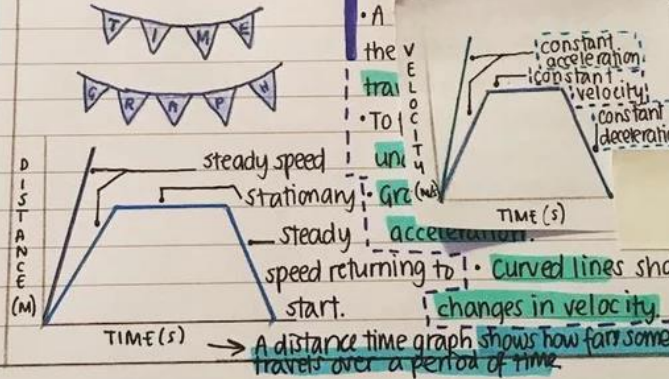 TIME
GRAPH
DISTANCE (M)
steady speed
stationary
steady
speed returning to
start.
TIME (S)
→ A distance time graph shows how far some
travels over a period of time
• A
the
• To
• Gra
acceleration.
• Curved lines sho
changes in velocity.
VELOCITY (M/s)
constant
acceleration
constant
velocity
constant
decelerati
TIME (S)